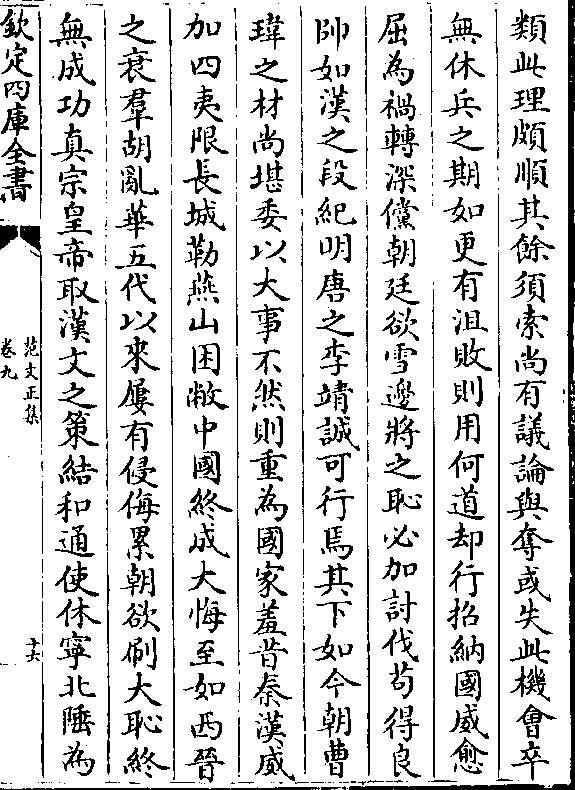 類此理頗順其餘須索尚有議論與奪或失此機會卒
無休兵之期如更有沮敗則用何道却行招納國威愈
屈為禍轉深儻朝廷欲雪邊將之恥必加討伐茍得良
帥如漢之段紀明唐之李靖誠可行焉其下如今朝曹
瑋之材尚堪委以大事不然則重為國家羞昔秦漢威
加四夷限長城勒燕山困敝中國終成大悔至如西晉
之衰羣胡亂華五代以來屢有侵侮累朝欲刷大恥終
無成功真宗皇帝取漢文之策結和通使休寧北陲為
欽定四庫全書
范文正集
卷九
十六